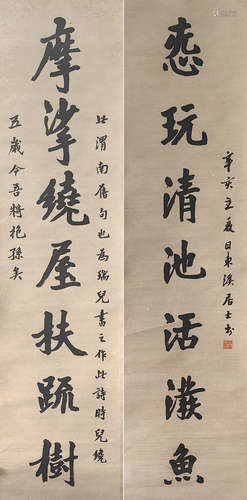 辛亥立夏日東溪居士书
恣玩清池活潑魚
此渭南舊句也為瑞兒書之作此詩時兒纔
摩挲繞屋扶疏樹
五歲今吾將抱孫矣